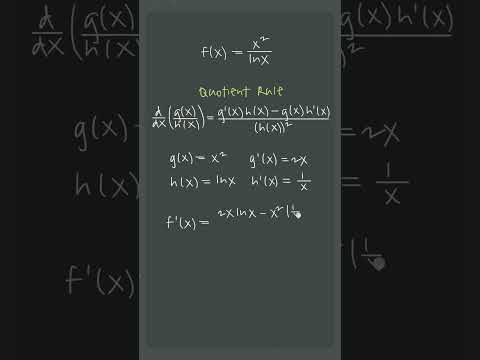 f(x) = x²/lnx
Quotient Rule
d/dx (g(x)/h(x)) = g'(x)h(x) − g(x)h'(x)/(h(x))²
g(x) = x² g'(x) = 2x
h(x) = lnx h'(x) = 1/x
f'(x) = 2x lnx − x² (1/